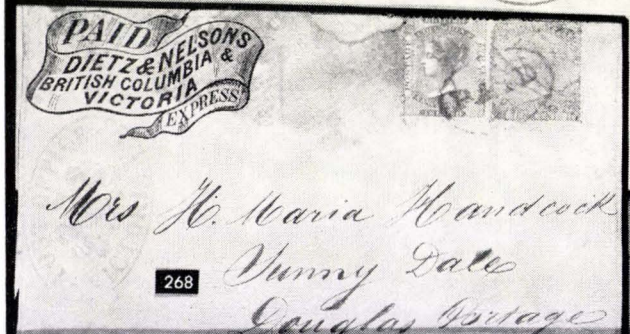 PAID
DIETZ & NELSONS
BRITISH COLUMBIA &
VICTORIA
EXPRESS
PAID
Mrs H. Maria Handcock
Sunny Dale
268
Douglas Portage